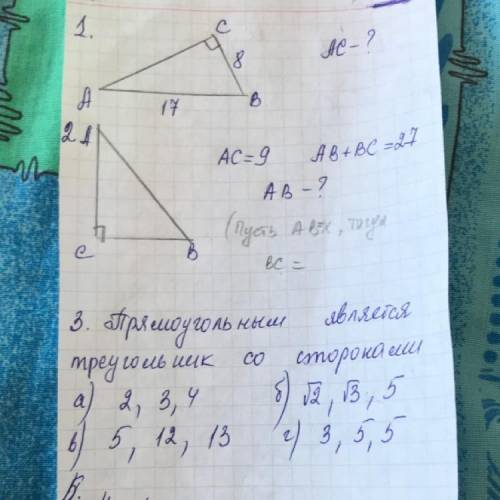 1.
C
8
AC - ?
A
17
B
2
A
AC = 9 AB + BC = 27
AB - ?
(Пусть AB=x, тогда
BC =
C
B
3. Прямоугольным является
треугольник со сторонами
а) 2, 3, 4 б) √2, √3, 5
в) 5, 12, 13 г) 3, 5, 5